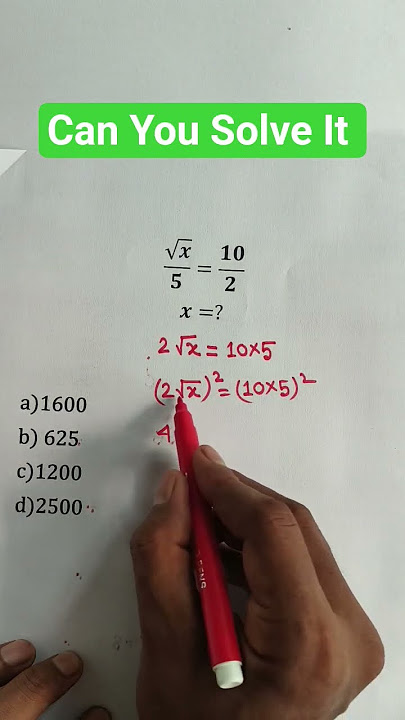 Can You Solve It
√x/5 = 10/2
x =?
2√x = 10×5
(2√x)² = (10×5)²
4
a)1600
b) 625
c)1200
d)2500